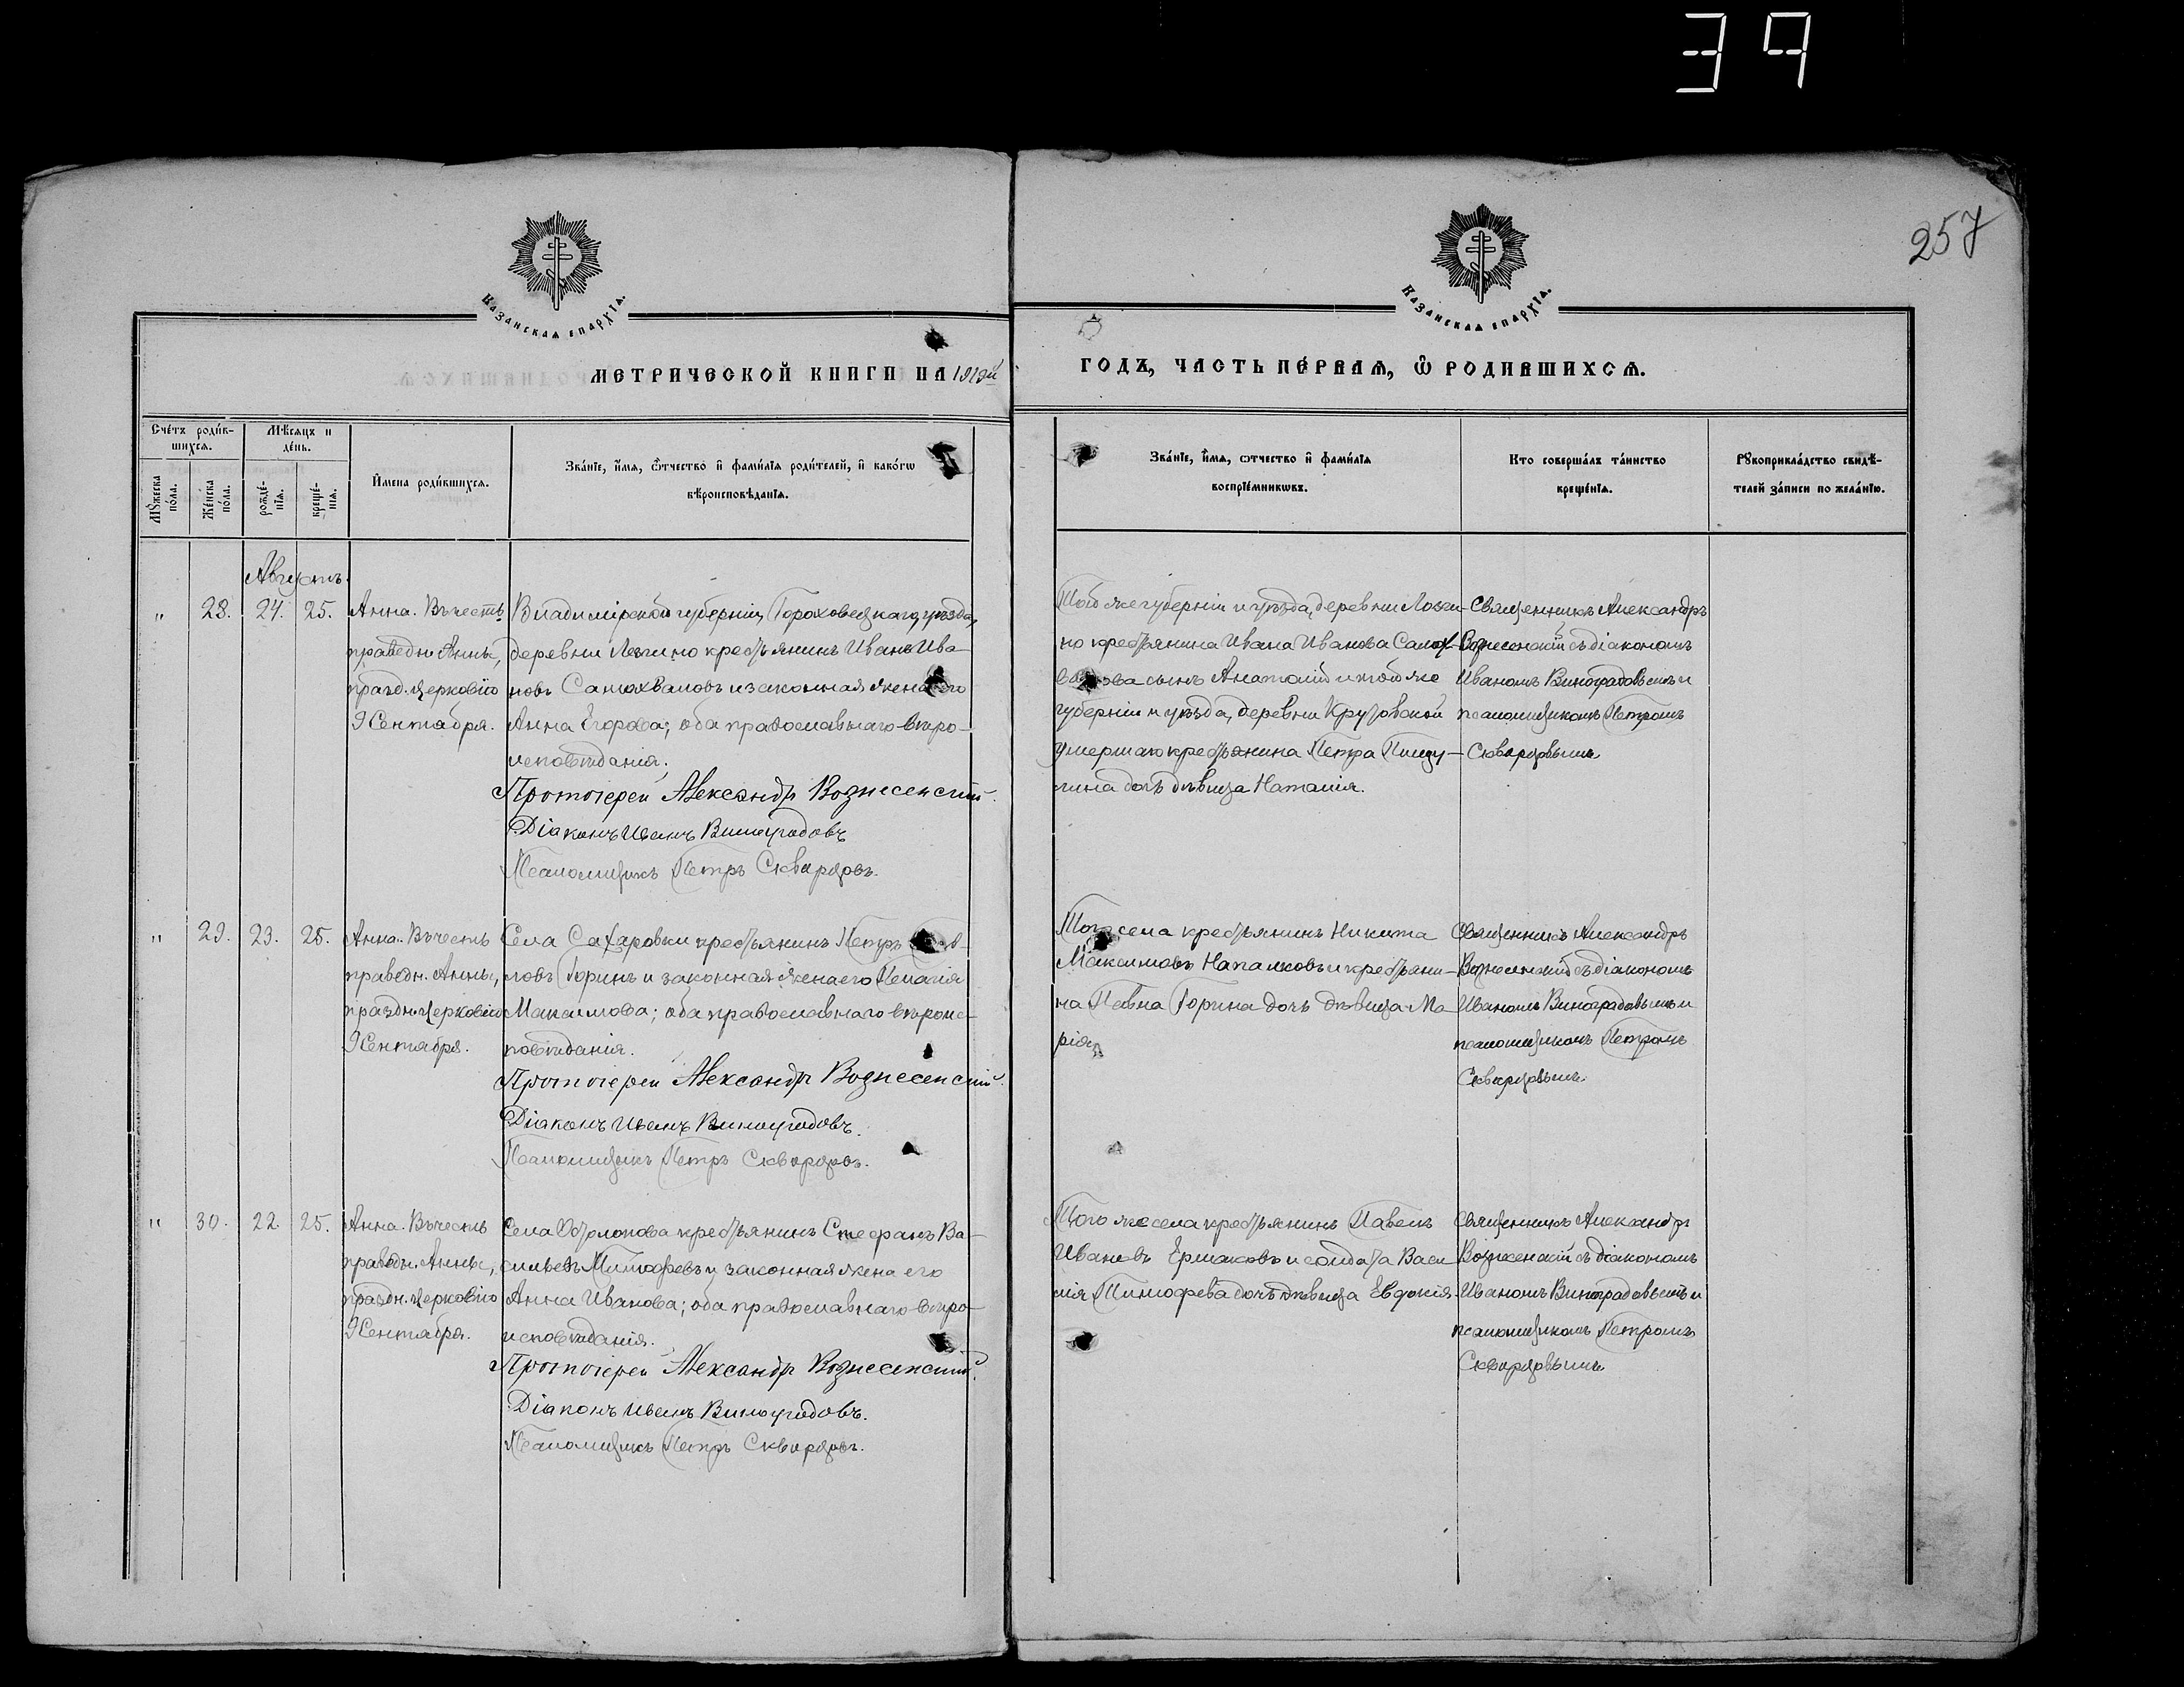 39
257
Казанская епархїя.
Казанская епархїя.
МЕТРИЧЕСКОЙ КНИГИ НА 1919й
ГОДЪ, ЧАСТЬ ПЕРВАЯ, Ѿ РОДИВШИХСЯ.
Счетъ родив-
шихся.
Мѣсяцъ и
день.
Мꙋжеска
пола.
Женска
пола.
рожде-
нїя.
креще-
нїя.
Имена родившихся.
Званїе, имя, ѿчество и фамилїя родителей, и какогѡ
вѣроисповѣданїя.
Званїе, имя, ѿтчество и фамилїя
воспрїемникѡвъ.
Кто совершалъ таинство
крещенїя.
Рꙋкоприкладство свидѣ-
телей записи по желанїю.
Августъ.
" 28. 24. 25.
Анна. Въ честь
праведн. Анны,
празд. Церковію
9 Сентября.
Владимірской губерніи, Гороховецкаго уѣзда,
деревни крестьянинъ Иванъ Ива-
новъ Самохваловъ и законная жена его
Анна Егорова; оба православнаго вѣро-
исповѣданія.
Протоіерей Александръ Вознесенскій.
Діаконъ Иванъ Виноградовъ
Псаломщикъ Петръ Скворцовъ.
Той же губерніи и уѣзда, деревни
но крестьянина Ивана Иванова Самох-
валова сынъ Анатолій и той же
губерніи и уѣзда, деревни Круговской
умершаго крестьянина Петра
дочь дѣвица Наталія.
Священникъ Александръ
Вознесенскій съ діакономъ
Иваномъ Виноградовымъ и
псаломщикомъ Петромъ
Скворцовымъ.
" 29. 23. 25.
Анна. Въ честь
праведн. Анны,
праздн. Церковію
9 Сентября.
Села Сахаровки крестьянинъ Петръ
ловъ Горинъ и законная жена его Пелагія
Максимова; оба православнаго вѣроис-
повѣданія.
Протоіерей Александръ Вознесенскій.
Діаконъ Иванъ Виноградовъ.
Псаломщикъ Петръ Скворцовъ.
Того села крестьянинъ Никита
Максимовъ Напалковъ и крестьяни-
на Павла Горина дочь дѣвица Ма-
рія.
Священникъ Александръ
Вознесенскій съ діакономъ
Иваномъ Виноградовымъ и
псаломщикомъ Петромъ
Скворцовымъ.
" 30. 22. 25.
Анна. Въ честь
праведн. Анны,
праздн. Церковію
9 Сентября.
Села крестьянинъ Стефанъ Ва-
сильевъ Тимофеевъ и законная жена его
Анна Иванова; оба православнаго вѣро-
исповѣданія.
Протоіерей Александръ Вознесенскій.
Діаконъ Иванъ Виноградовъ.
Псаломщикъ Петръ Скворцовъ.
Того же села крестьянинъ Павелъ
Ивановъ Ермаковъ и солдата Васи-
лія Тимофеева дочь дѣвица Евдокія.
Священникъ Александръ
Вознесенскій съ діакономъ
Иваномъ Виноградовымъ и
псаломщикомъ Петромъ
Скворцовымъ.